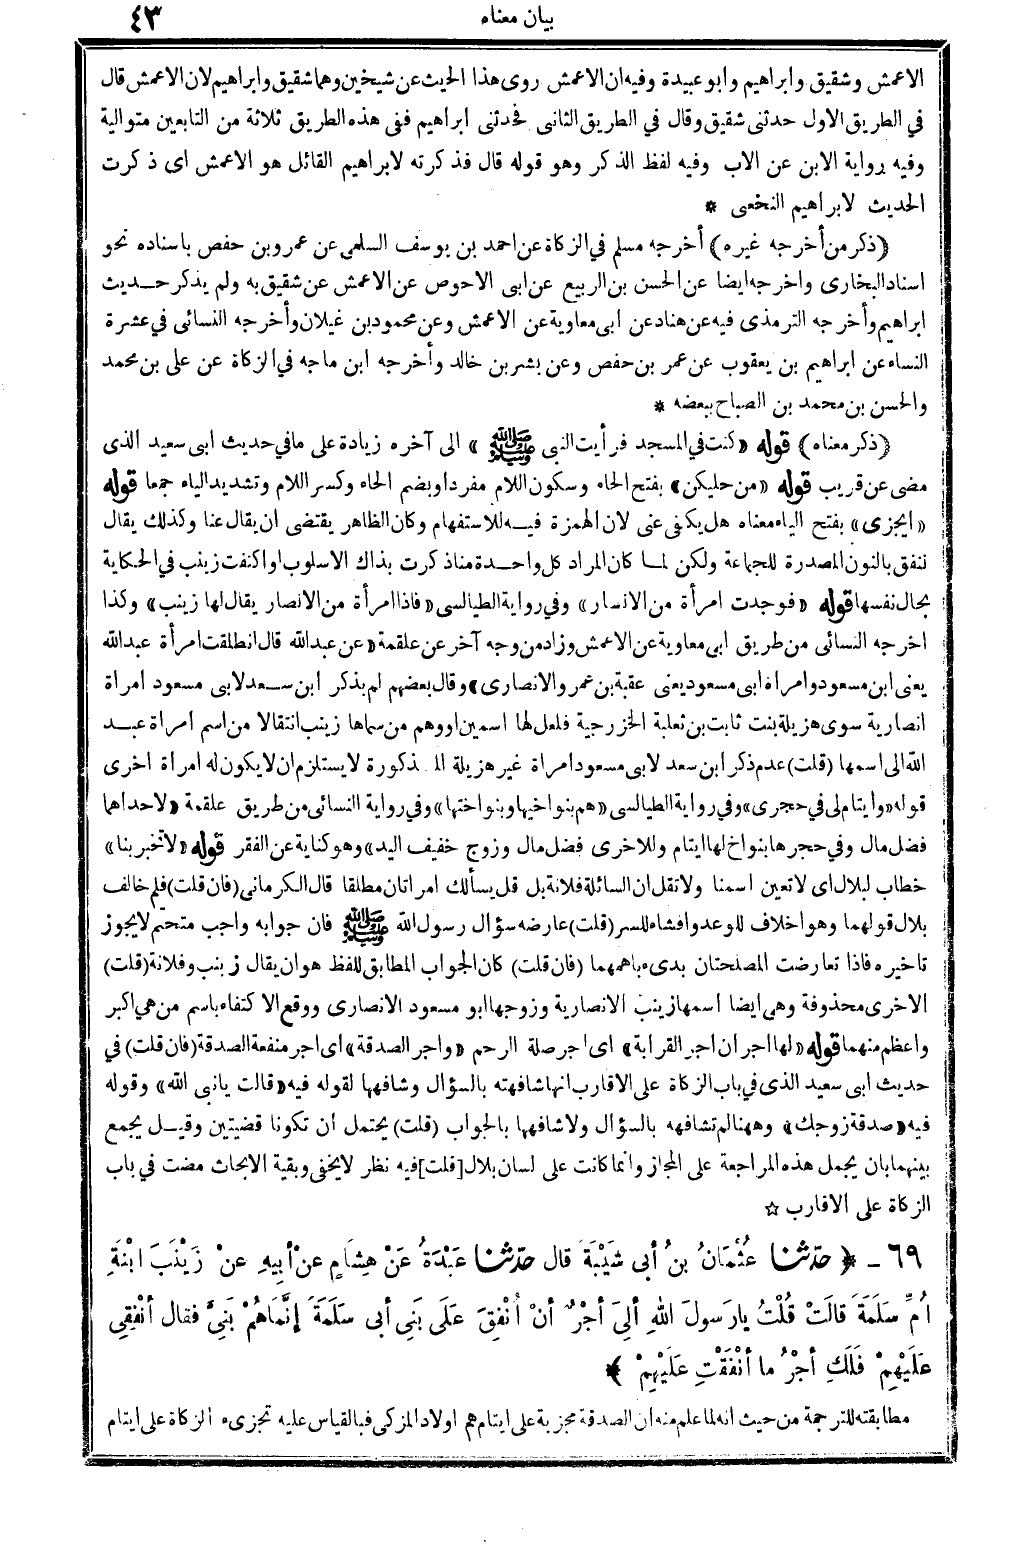 بيان معناه
٤٣
الاعمش وشقيق وابراهيم وابو عبيدة وفيه ان الاعمش روى هذا الحديث عن شيخين وهما شقيق وابراهيم لان الاعمش قال
في الطريق الاول حدثنى شقيق وقال في الطريق الثانى فحدثنى ابراهيم ففى هذه الطريق ثلاثة من التابعين متوالية
وفيه رواية الابن عن الاب وفيه لفظ الذكر وهو قوله قال فذكرته لابراهيم القائل هو الاعمش اى ذكرت
الحديث لابراهيم النخعى *
(ذكر من أخرجه غيره) أخرجه مسلم في الزكاة عن احمد بن يوسف السلمى عن عمرو بن حفص باسناده نحو
اسناد البخارى واخرجه ايضا عن الحسن بن الربيع عن ابى الاحوص عن الاعمش عن شقيق به ولم يذكر حديث
ابراهيم وأخرجه الترمذى فيه عن هناد عن ابى معاوية عن الاعمش وعن محمود بن غيلان وأخرجه النسائى في عشرة
النساء عن ابراهيم بن يعقوب عن عمر بن حفص وعن بشر بن خالد وأخرجه ابن ماجه في الزكاة عن على بن محمد
والحسن بن محمد بن الصباح ببعضه *
(ذكر معناه) قوله «كنت في المسجد فرأيت النبى ﷺ» الى آخره زيادة على ما في حديث ابى سعيد الذى
مضى عن قريب قوله «من حليكن» بفتح الحاء وسكون اللام مفردا وبضم الحاء وكسر اللام وتشديد الياء جمعا قوله
«ايجزى» بفتح الياء معناه هل يكفى عنى لان الهمزة فيه للاستفهام وكان الظاهر يقتضى ان يقال عنا وكذلك يقال
ننفق بالنون المصدرة للجماعة ولكن لما كان المراد كل واحدة منا ذكرت بذاك الاسلوب او اكتفت زينب في الحكاية
بحال نفسها قوله «فوجدت امرأة من الانسار» وفي رواية الطيالسى «فاذا امرأة من الانصار يقال لها زينب» وكذا
اخرجه النسائى من طريق ابى معاوية عن الاعمش وزاد من وجه آخر عن علقمة «عن عبدالله قال انطلقت امرأة عبدالله
يعنى ابن مسعود وامرأة ابى مسعود يعنى عقبة بن عمرو الانصارى» وقال بعضهم لم يذكر ابن سعد لابى مسعود امرأة
انصارية سوى هزيلة بنت ثابت بن ثعلبة الخزرجية فلعل لها اسمين او وهم من سماها زينب انتقالا من اسم امرأة عبد
الله الى اسمها (قلت) عدم ذكر ابن سعد لابى مسعود امرأة غير هزيلة المذكورة لا يستلزم ان لا يكون له امرأة اخرى
قوله «وايتام لى في حجرى» وفي رواية الطيالسى «هم بنو اخيها وبنو اختها» وفي رواية النسائى من طريق علقمة «لاحداهما
فضل مال وفي حجرها بنو اخ لها ايتام وللاخرى فضل مال وزوج خفيف اليد» وهو كناية عن الفقر قوله «لا تخبر بنا»
خطاب لبلال اى لا تعين اسمنا ولا تقل ان السائلة فلانة بل قل يسألك امرأتان مطلقا قال الكرمانى (فان قلت) فلم خالف
بلال قولهما وهو اخلاف للوعد وافشاء للسر (قلت) عارضه سؤال رسول الله ﷺ فان جوابه واجب متحتم لا يجوز
تاخيره فاذا تعارضت المصلحتان بدىء باهمهما (فان قلت) كان الجواب المطابق للفظ هو ان يقال زينب وفلانة (قلت)
الاخرى محذوفة وهى ايضا اسمها زينب الانصارية وزوجها ابو مسعود الانصارى ووقع الاكتفاء باسم من هى اكبر
واعظم منهما قوله «لها اجران اجر القرابة» اى اجر صلة الرحم «واجر الصدقة» اى اجر منفعة الصدقة (فان قلت) في
حديث ابى سعيد الذى في باب الزكاة على الاقارب انها شافهته بالسؤال وشافهها لقوله فيه «قالت يا نبى الله» وقوله
فيه «صدقة زوجك» وههنا لم تشافهه بالسؤال ولا شافهها بالجواب (قلت) يحتمل ان تكونا قضيتين وقيل يجمع
بينهما بان يحمل هذه المراجعة على المجاز وانما كانت على لسان بلال [قلت] فيه نظر لا يخفى وبقية الابحاث مضت في باب
الزكاة على الاقارب ☆
٦٩ - ﴿ حدّثنا عُثْمَانُ بنُ أبى شَيْبَةَ قال حدّثنا عَبْدَةُ عَنْ هِشَامٍ عنْ أبيهِ عنْ زَيْنَبَ ابْنَةِ
اُمِّ سَلَمَةَ قالَتْ قُلْتُ يا رَسولَ اللهِ ألِىَ أجْرٌ أنْ اُنْفِقَ عَلَى بَنِى أبى سَلَمَةَ إنَّمَا هُمْ بَنِىَّ فقال أنْفِقِى
عَلَيْهِمْ فَلَكِ أجْرُ ما أنْفَقْتِ عَلَيْهِمْ ﴾
مطابقته للترجمة من حيث انه لما علم منه ان الصدقة مجزية على ايتام هم اولاد المزكى فبالقياس عليه تجزىء الزكاة على ايتام